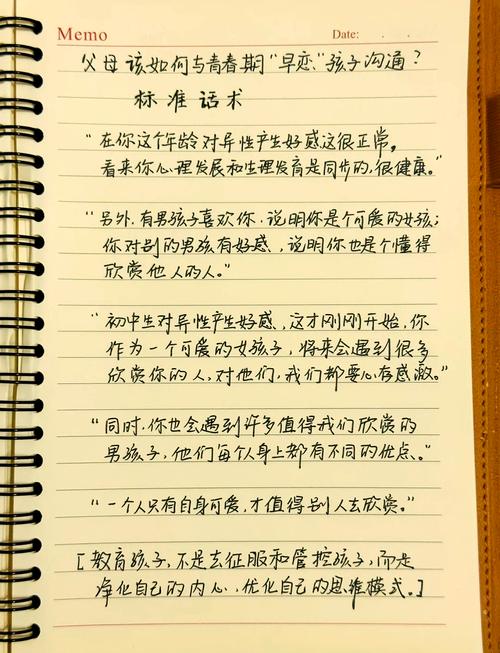 Memo
Date:
父母该如何与青春期"早恋"孩子沟通?
标准话术
"在你这个年龄对异性产生好感这很正常。
看来你心理发展和生理发育是同步的,很健康。"
"另外,有男孩子喜欢你,说明你是个可爱的女孩;
你对别的男孩有好感,说明你也是个懂得
欣赏他人的人。"
"初中生对异性产生好感,这才刚刚开始,你
作为一个可爱的女孩子,将来会遇到很多
欣赏你的人,对他们,我们都要心存感激。"
"同时,你也会遇到许多值得我们欣赏的
男孩子,他们每个人身上都有不同的优点。"
"一个人只有自身可爱,才值得别人去欣赏。"
[教育孩子,不是去征服和管控孩子,而是
净化自己的内心,优化自己的思维模式。]